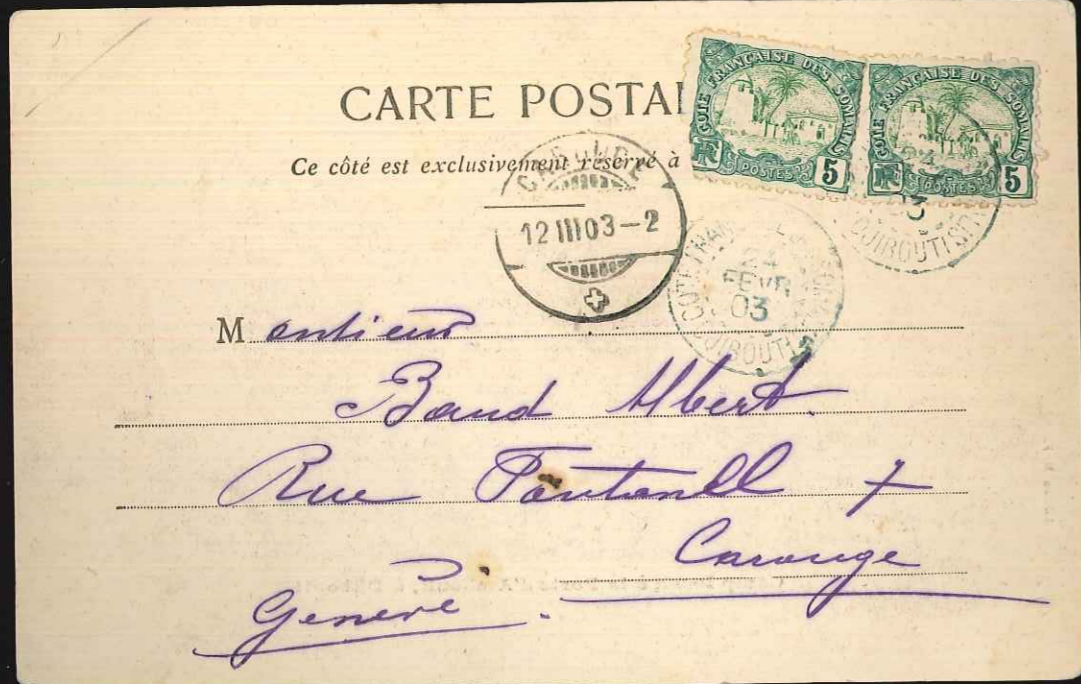 CARTE POSTAL
Ce côté est exclusivement réservé à
COTE FRANÇAISE DES SOMALIS
RF POSTES 5
COTE FRANÇAISE DES SOMALIS
RF POSTES 5
CAROUGE
12 III 03-2
24
FEVR
03
DJIBOUTI
03
DJIBOUTI
Monsieur
Baud Albert.
Rue 7
Carouge
Genève.